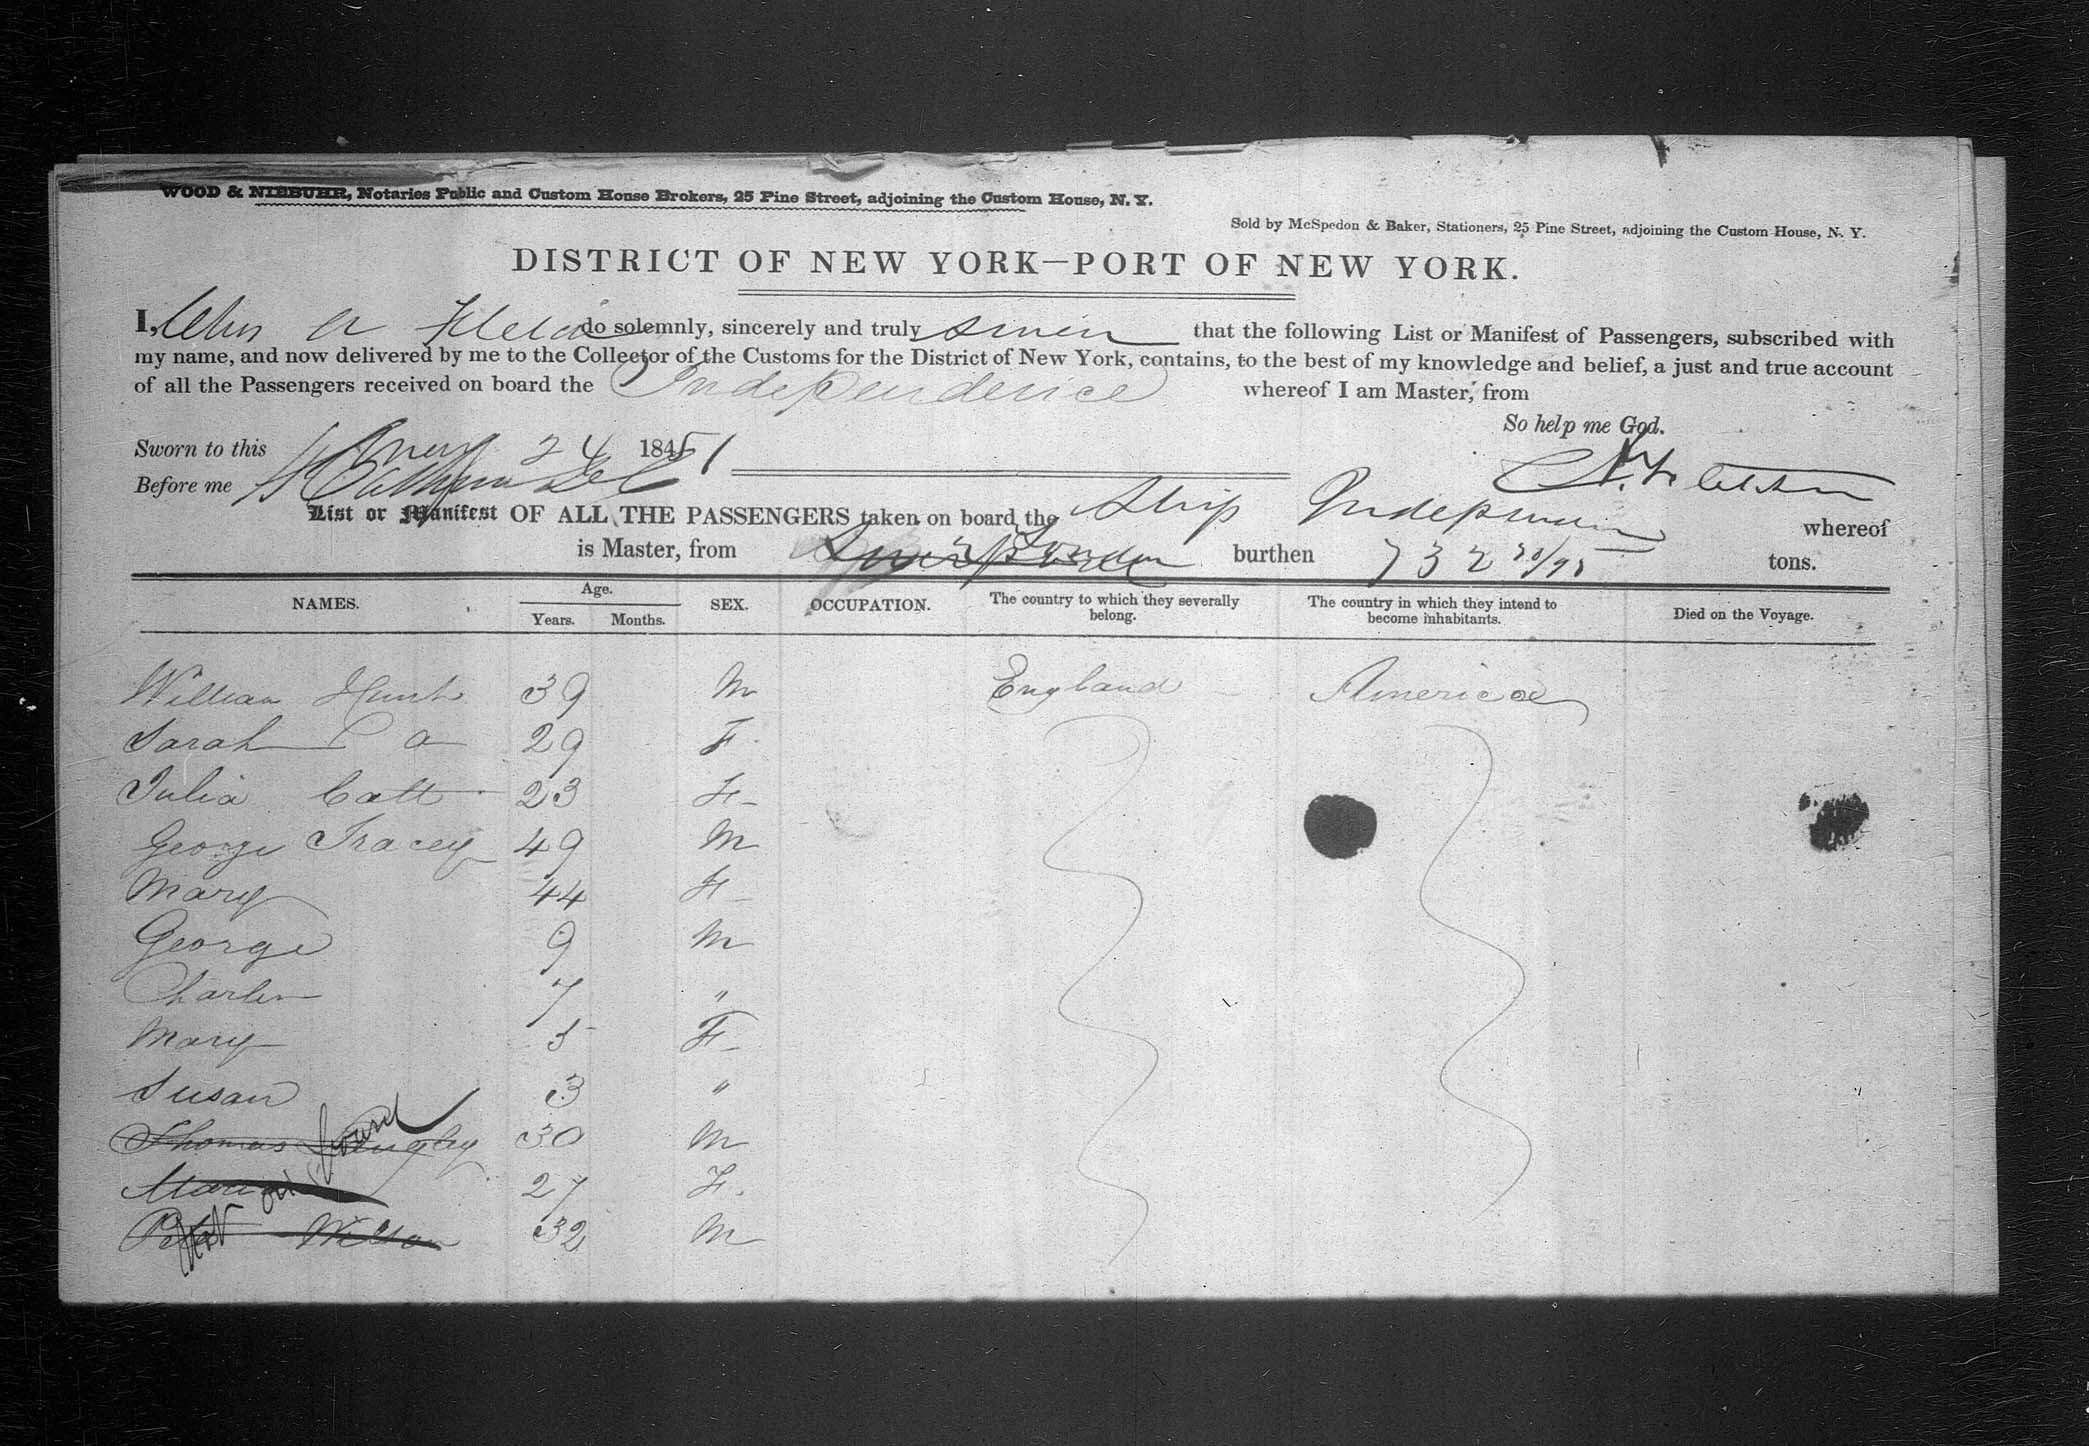 WOOD & NIEBUHR, Notaries Public and Custom House Brokers, 25 Pine Street, adjoining the Custom House, N. Y.
Sold by McSpedon & Baker, Stationers, 25 Pine Street, adjoining the Custom House, N. Y.
DISTRICT OF NEW YORK—PORT OF NEW YORK.
I, do solemnly, sincerely and truly that the following List or Manifest of Passengers, subscribed with
my name, and now delivered by me to the Collector of the Customs for the District of New York, contains, to the best of my knowledge and belief, a just and true account
of all the Passengers received on board the Independence whereof I am Master, from
So help me God.
Sworn to this 24 184 51
Before me
List or Manifest OF ALL THE PASSENGERS taken on board the Ship whereof
is Master, from London burthen 732 tons.
NAMES. Age. SEX. OCCUPATION. The country to which they severally belong. The country in which they intend to become inhabitants. Died on the Voyage.
Years. Months.
William Hunt 39 M England America
Sarah 29 F
Julia Catt 23 F
George Tracey 49 M
Mary 44 F
George 9 M
Charles 7 "
Mary 5 F
Susan 3 "
Thomas 30 M
Maria 27 F.
Peter Wilson 32 M
Not on board